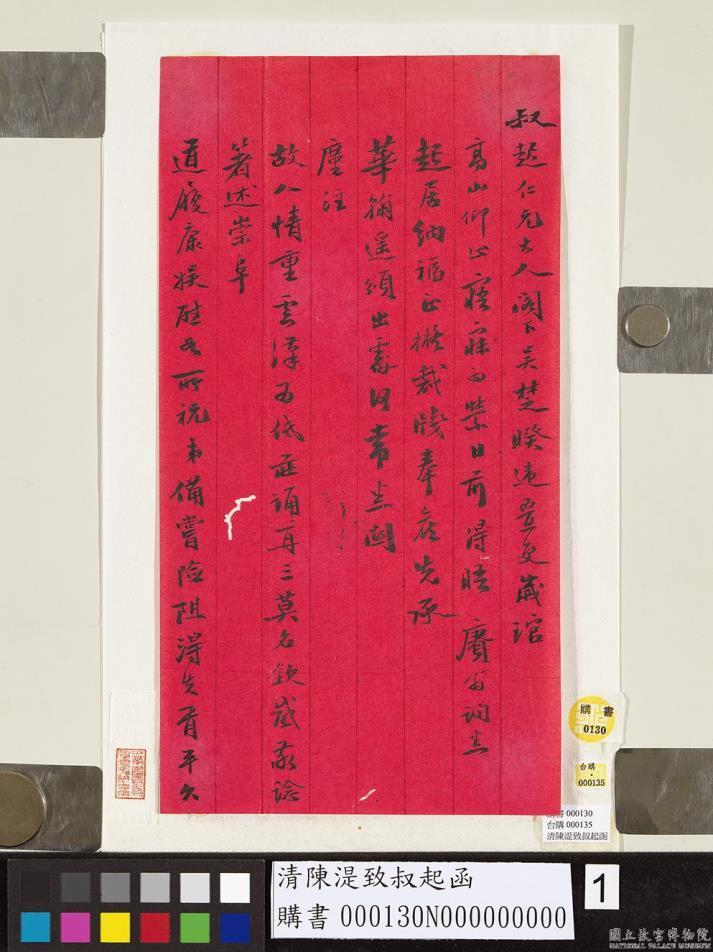 叔起仁兄大人閣下吳楚暌違亟更歲琯
高山仰止寤寐為縈日前得晤廣翁詢悉
起居納福正擬裁牋奉候先承
華翰遥頒出處日常悉關
廑注
故人情重雲漢為低莊誦再三莫名欽感敬諗
著述崇阜
道履康娛醉如所祝弟備嘗險阻得失有乎久
購書
0130
台購
000135
購書 000130
台購 000135
清陳湜致叔起函
清陳湜致叔起函
購書 000130N000000000
1
國立故宮博物院
NATIONAL PALACE MUSEUM